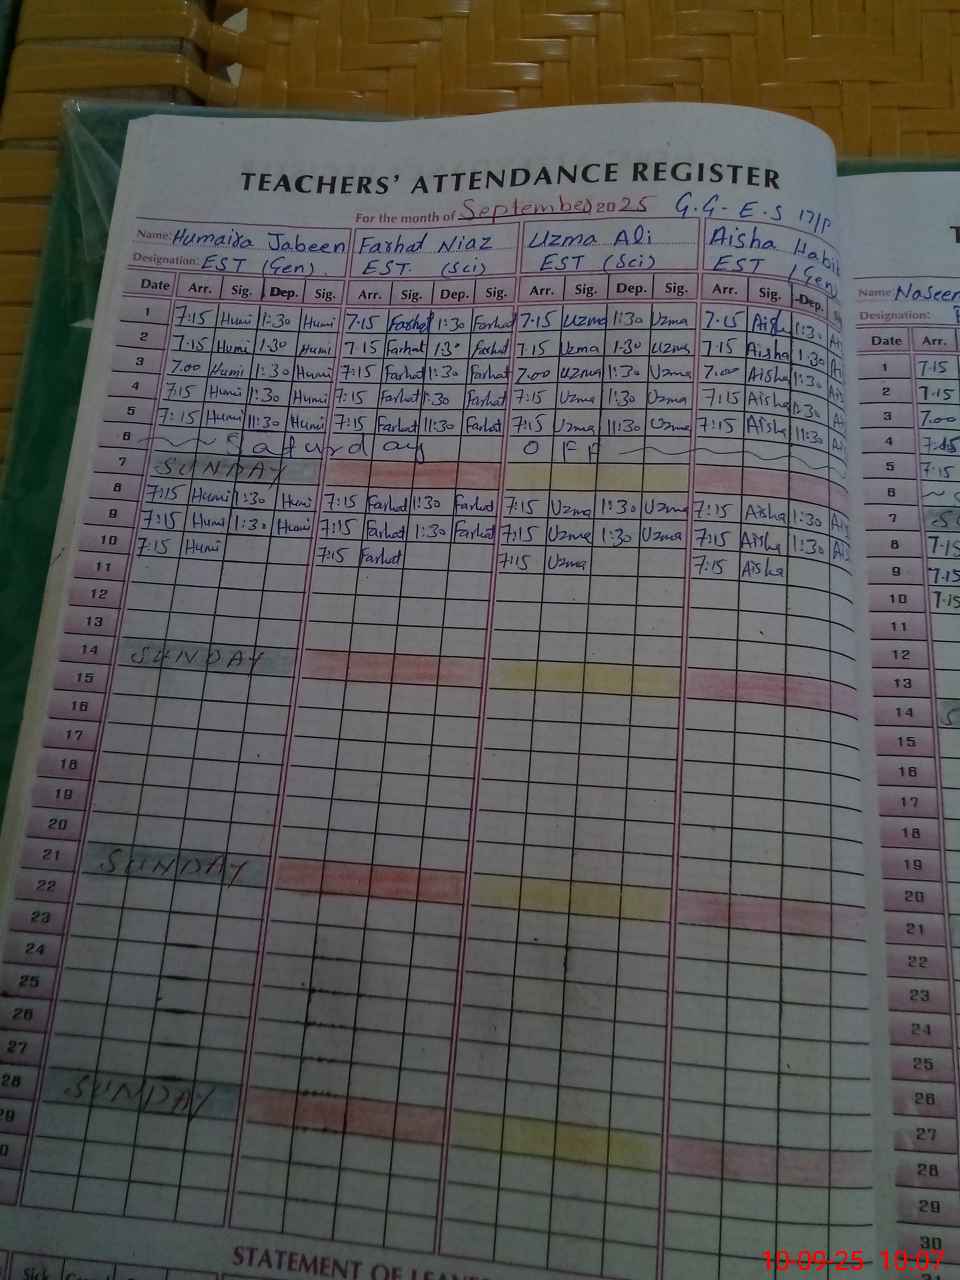 TEACHERS' ATTENDANCE REGISTER
For the month of September 2025 G.G.E.S 17/P
Name: Humaira Jabeen Farhat Niaz Uzma Ali Aisha Habib
Designation: EST (Gen) EST. (Sci) EST (Sci) EST (Gen)
Date Arr. Sig. Dep. Sig. Arr. Sig. Dep. Sig. Arr. Sig. Dep. Sig. Arr. Sig. Dep.
1 7:15 Humi 1:30 Humi 7.15 Farhat 1:30 Farhat 7.15 Uzma 1:30 Uzma 7.15 Aisha 1:30
2 7.15 Humi 1.30 Humi 7.15 Farhat 1.30 Farhat 7.15 Uzma 1.30 Uzma 7.15 Aisha 1.30
3 7.00 Humi 1:30 Humi 7:15 Farhat 1:30 Farhat 7.00 Uzma 1:30 Uzma 7.00 Aisha 1:30
4 7:15 Humi 1:30 Humi 7:15 Farhat 1:30 Farhat 7:15 Uzma 1:30 Uzma 7:15 Aisha 1:30
5 7:15 Humi 11:30 Humi 7:15 Farhat 11:30 Farhat 7:15 Uzma 11:30 Uzma 7:15 Aisha 11:30
6 Saturday OFF
7 SUNDAY
8 7:15 Humi 1:30 Humi 7:15 Farhat 1:30 Farhat 7:15 Uzma 1:30 Uzma 7:15 Aisha 1:30
9 7:15 Humi 1:30 Humi 7:15 Farhat 1:30 Farhat 7:15 Uzma 1:30 Uzma 7:15 Aisha 1:30
10 7:15 Humi 7:15 Farhat 7:15 Uzma 7:15 Aisha
11
12
13
14 SUNDAY
15
16
17
18
19
20
21 SUNDAY
22
23
24
25
26
27
28 SUNDAY
29
0
STATEMENT OF
Sick
Name: Naseem
Designation:
Date Arr.
1 7.15
2 7.15
3 7.00
4 7:15
5 7:15
6
7
8 7:15
9 7:15
10 7:15
11
12
13
14
15
16
17
18
19
20
21
22
23
24
25
26
27
28
29
30
10-09-25 10:07